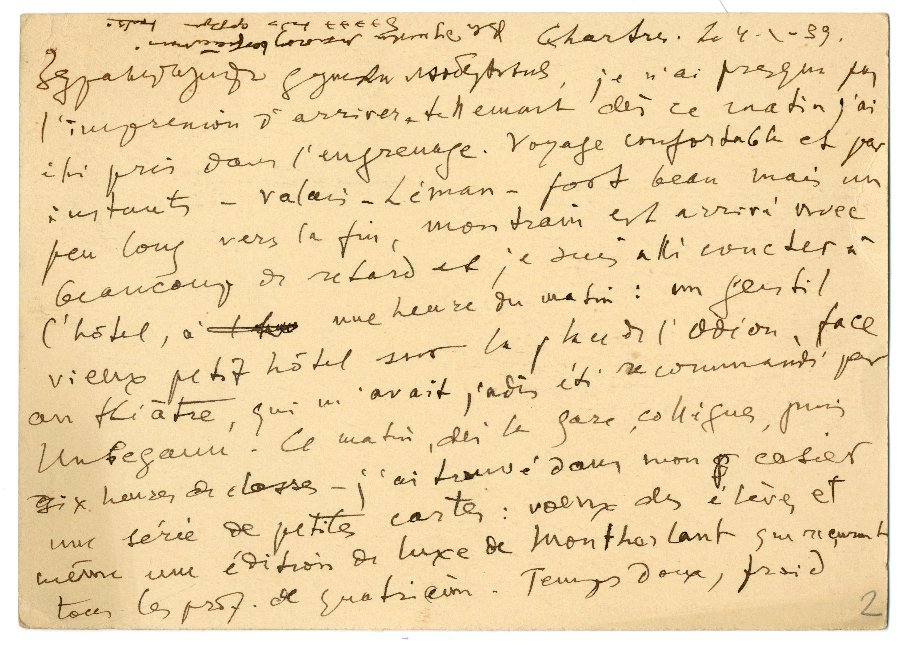 Chartres. Le 4-X-39.
je n'ai presque pas
l'impression d'arriver, tellement dès ce matin j'ai
été pris dans l'engrenage. Voyage confortable et par
instants – Valais – Léman – fort beau mais un
peu long vers la fin, mon train est arrivé avec
beaucoup de retard et je suis allé coucher à
l'hôtel, à une heure du matin : un gentil
vieux petit hôtel sur la place de l'Odéon, face
au théâtre, qui m'avait jadis été recommandé par
Unbegaun. Ce matin, dès la gare, collègues, puis
six heures de classes – j'ai trouvé dans mon casier
une série de petites cartes : vœux des élèves et
même une édition de luxe de Montherlant que reçurent
tous les prof. de quatrième. Temps doux, froid
2